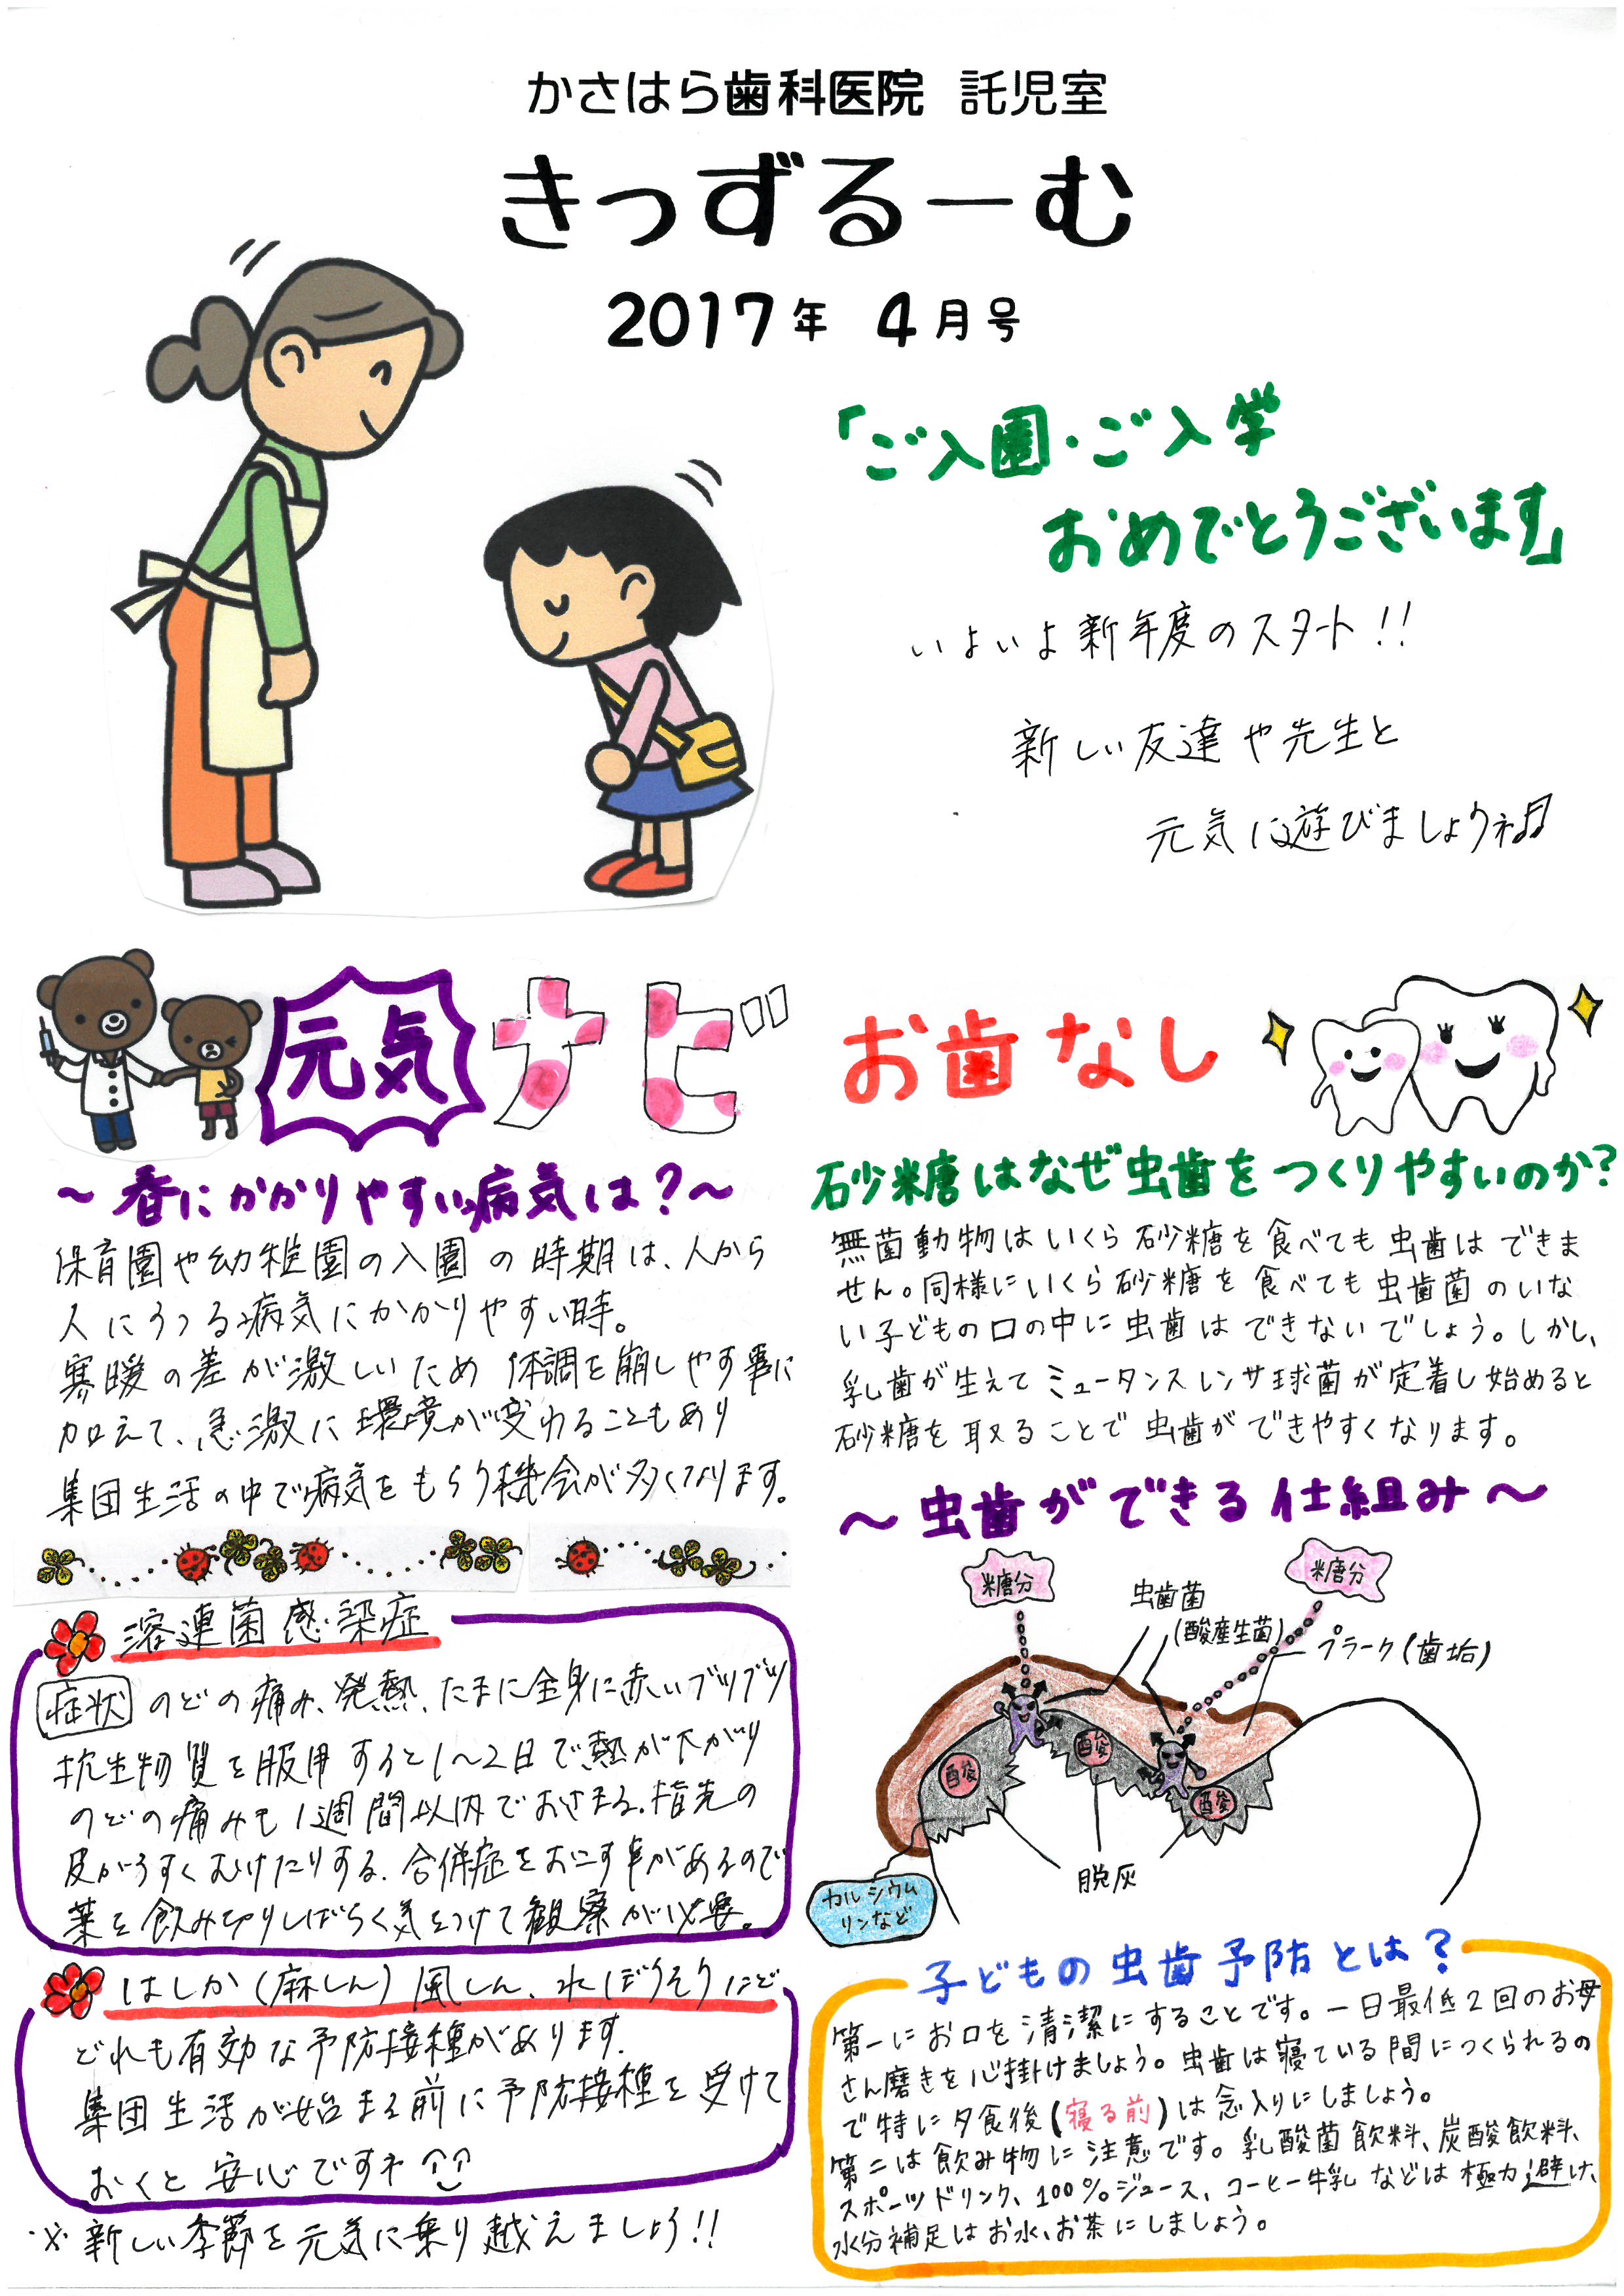 かさはら歯科医院 託児室
きっずるーむ
2017年 4月号
「ご入園・ご入学
おめでとうございます」
いよいよ新年度のスタート!!
新しい友達や先生と
元気に遊びましょうネ♬
元気ナビ
～春にかかりやすい病気は?～
保育園や幼稚園の入園の時期は、人から
人にうつる病気にかかりやすい時。
寒暖の差が激しいため体調を崩しやす事に
加えて、急激に環境が変わることもあり
集団生活の中で病気をもらう機会が多くなります。
溶連菌感染症
症状 のどの痛み、発熱、たまに全身に赤いブツブツ
抗生物質を服用すると1～2日で熱が下がり
のどの痛みも1週間以内でおさまる。指先の
皮がうすくむけたりする。合併症をおこす事があるので
薬を飲み切りしばらく気をつけて観察が必要。
はしか(麻しん)風しん、水ぼうそうなど
どれも有効な予防接種があります。
集団生活が始まる前に予防接種を受けて
おくと安心ですネ
※新しい季節を元気に乗り越えましょう!!
お歯なし
砂糖はなぜ虫歯をつくりやすいのか?
無菌動物はいくら砂糖を食べても虫歯はできま
せん。同様にいくら砂糖を食べても虫歯菌のいな
い子どもの口の中に虫歯はできないでしょう。しかし、
乳歯が生えてミュータンスレンサ球菌が定着し始めると
砂糖を取ることで虫歯ができやすくなります。
～虫歯ができる仕組み～
糖分
虫歯菌
(酸産生菌)
糖分
プラーク(歯垢)
酸
酸
酸
脱灰
カルシウム
リンなど
子どもの虫歯予防とは?
第一にお口を清潔にすることです。一日最低2回のお母
さん磨きを心掛けましょう。虫歯は寝ている間につくられるの
で特に夕食後(寝る前)は念入りにしましょう。
第二は飲み物に注意です。乳酸菌飲料、炭酸飲料、
スポーツドリンク、100%ジュース、コーヒー牛乳などは極力避け、
水分補足はお水、お茶にしましょう。